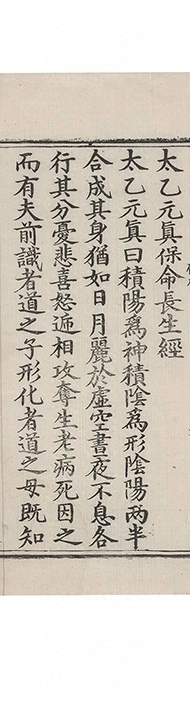 太乙元眞保命長生經
太乙元眞曰積陽爲神積陰爲形陰陽兩半
合成其身猶如日月麗於虛空晝夜不息各
行其分憂悲喜怒遞相攻奪生老病死因之
而有夫前識者道之子形化者道之母既知